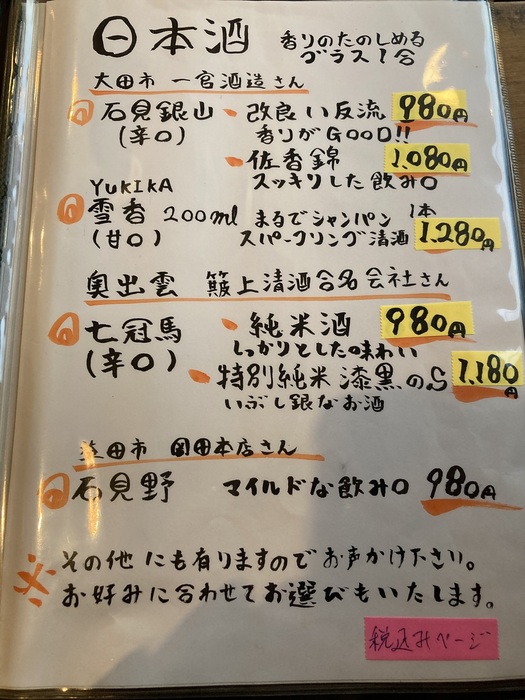 日本酒 香りのたのしめる
グラス1合
大田市 一宮酒造さん
石見銀山 改良八反流 980円
(辛口) 香りがGOOD!!
佐香錦 1.080円
スッキリした飲み口
YUKIKA
雪香 200ml まるでシャンパン 1本
(甘口) スパークリング清酒 1.280円
奥出雲 簸上清酒合名会社さん
七冠馬 純米酒 980円
(辛口) しっかりとした味わい
特別純米 漆黒のS 1,180円
いぶし銀なお酒
益田市 岡田本店さん
石見野 マイルドな飲み口 980円
※ その他にも有りますのでお声かけ下さい。
お好みに合わせてお選びもいたします。
税込みページ